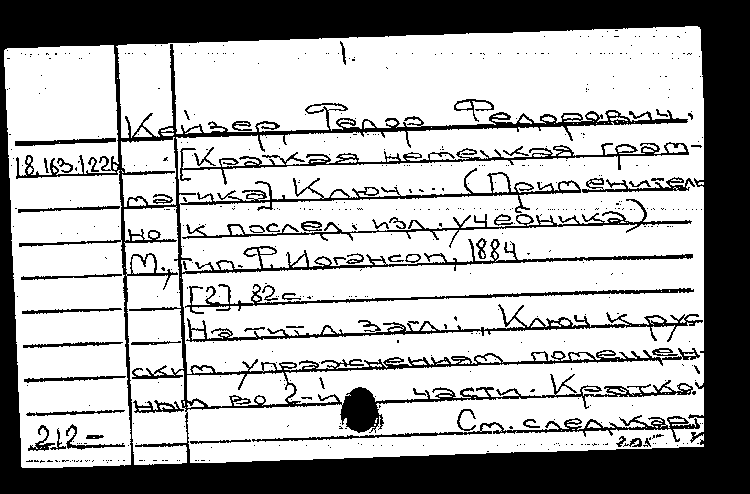 1.
Кейзер, Федор Федорович.
18.163.1.226. [Краткая немецкая грам-
матика]. Ключ.... (Применитель
но к послед. изд. учебника)
М., тип. Ф. Иогансон, 1884.
[2], 82 с.
На тит. л. загл.: „Ключ к рус
ским упражнениям помещен-
ным во 2-й части. Краткой
212- См. след. карт